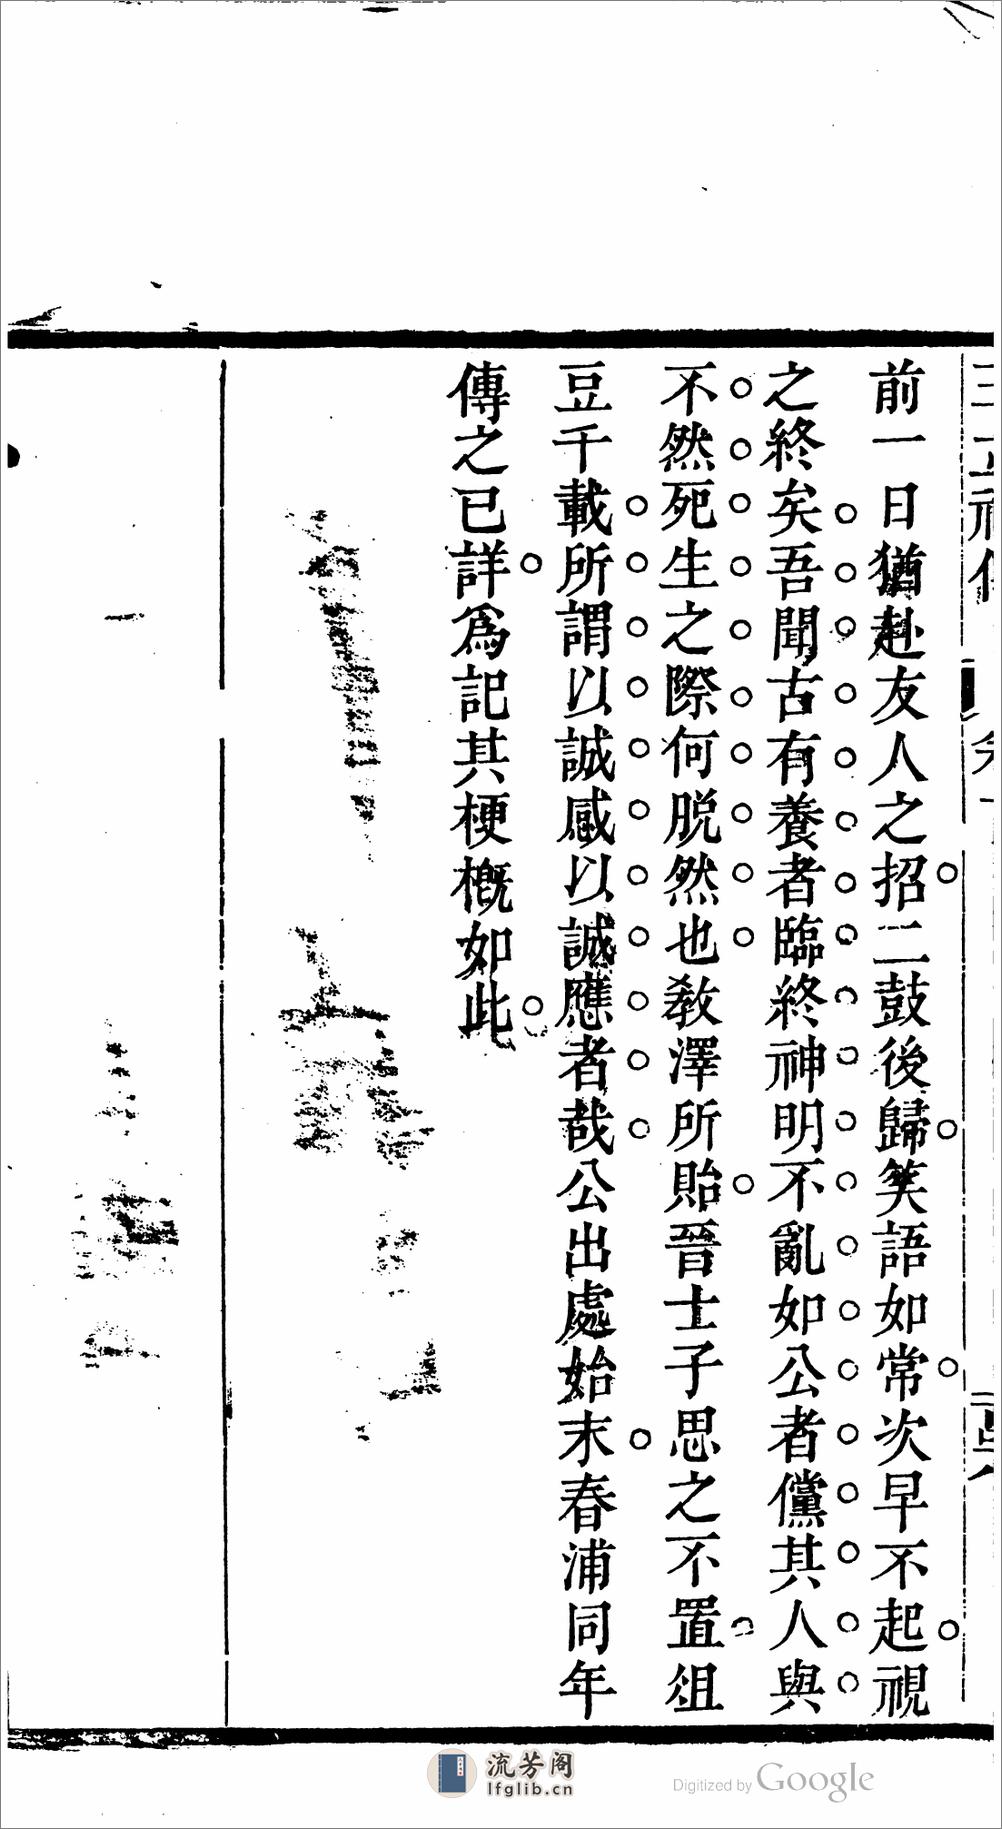 前一日猶赴友人之招二鼓後歸笑語如常次早不起視
之終矣吾聞古有養者臨終神明不亂如公者儻其人與
不然死生之際何脫然也教澤所貽晉士子思之不置俎
豆千載所謂以誠感以誠應者哉公出處始末春浦同年
傳之已詳爲記其梗概如此
流芳阁
lfglib.cn
Digitized by Google